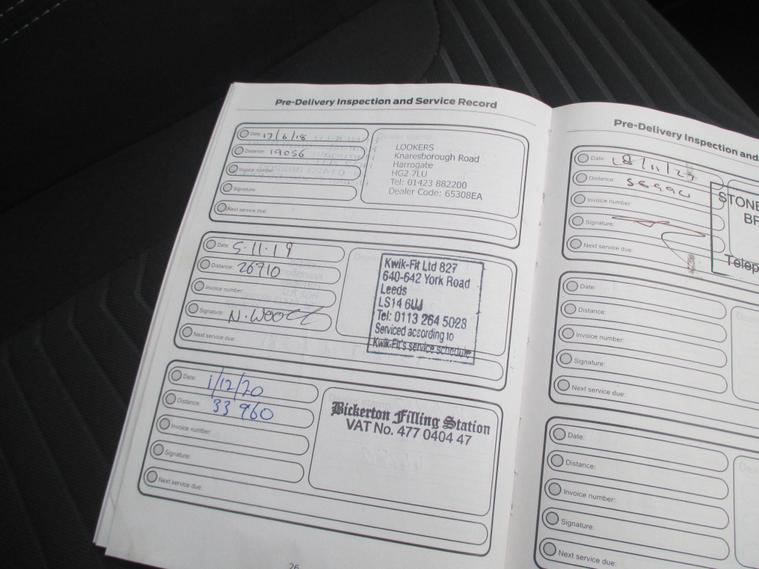 Pre-Delivery Inspection and Service Record
Date: 17/6/18
Distance: 19056
Invoice number:
Signature:
Next service due:
LOOKERS
Knaresborough Road
Harrogate
HG2 7LU
Tel: 01423 882200
Dealer Code: 65308EA
Date: 5.11.19
Distance: 26910
Invoice number:
Signature: N. Wood
Next service due:
Kwik-Fit Ltd 827
640-642 York Road
Leeds
LS14 6UJ
Tel: 0113 264 5028
Serviced according to
Kwik-Fit's service schedule
Date: 1/12/20
Distance: 33 960
Invoice number:
Signature:
Next service due:
Bickerton Filling Station
VAT No. 477 0404 47
26
Pre-Delivery Inspection and
Date:
Distance:
Invoice number:
Signature:
Next service due:
STONE
BR
Telep
Date:
Distance:
Invoice number:
Signature:
Next service due:
Date:
Distance:
Invoice number:
Signature:
Next service due: